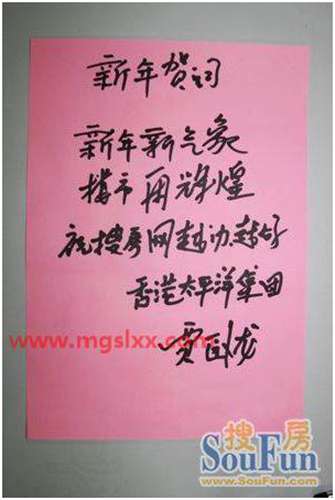 新年贺词
新年新气象
楼市再辉煌
祝搜房网越办越好
香港太平洋集团
www.mgslxx.com
贾卧龙
搜房
SouFun
www.SouFun.com